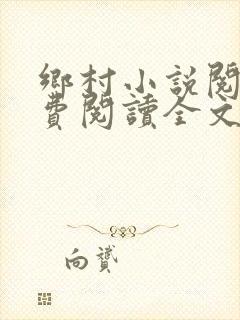 鄉村小說閱
費閱讀全文
向贇